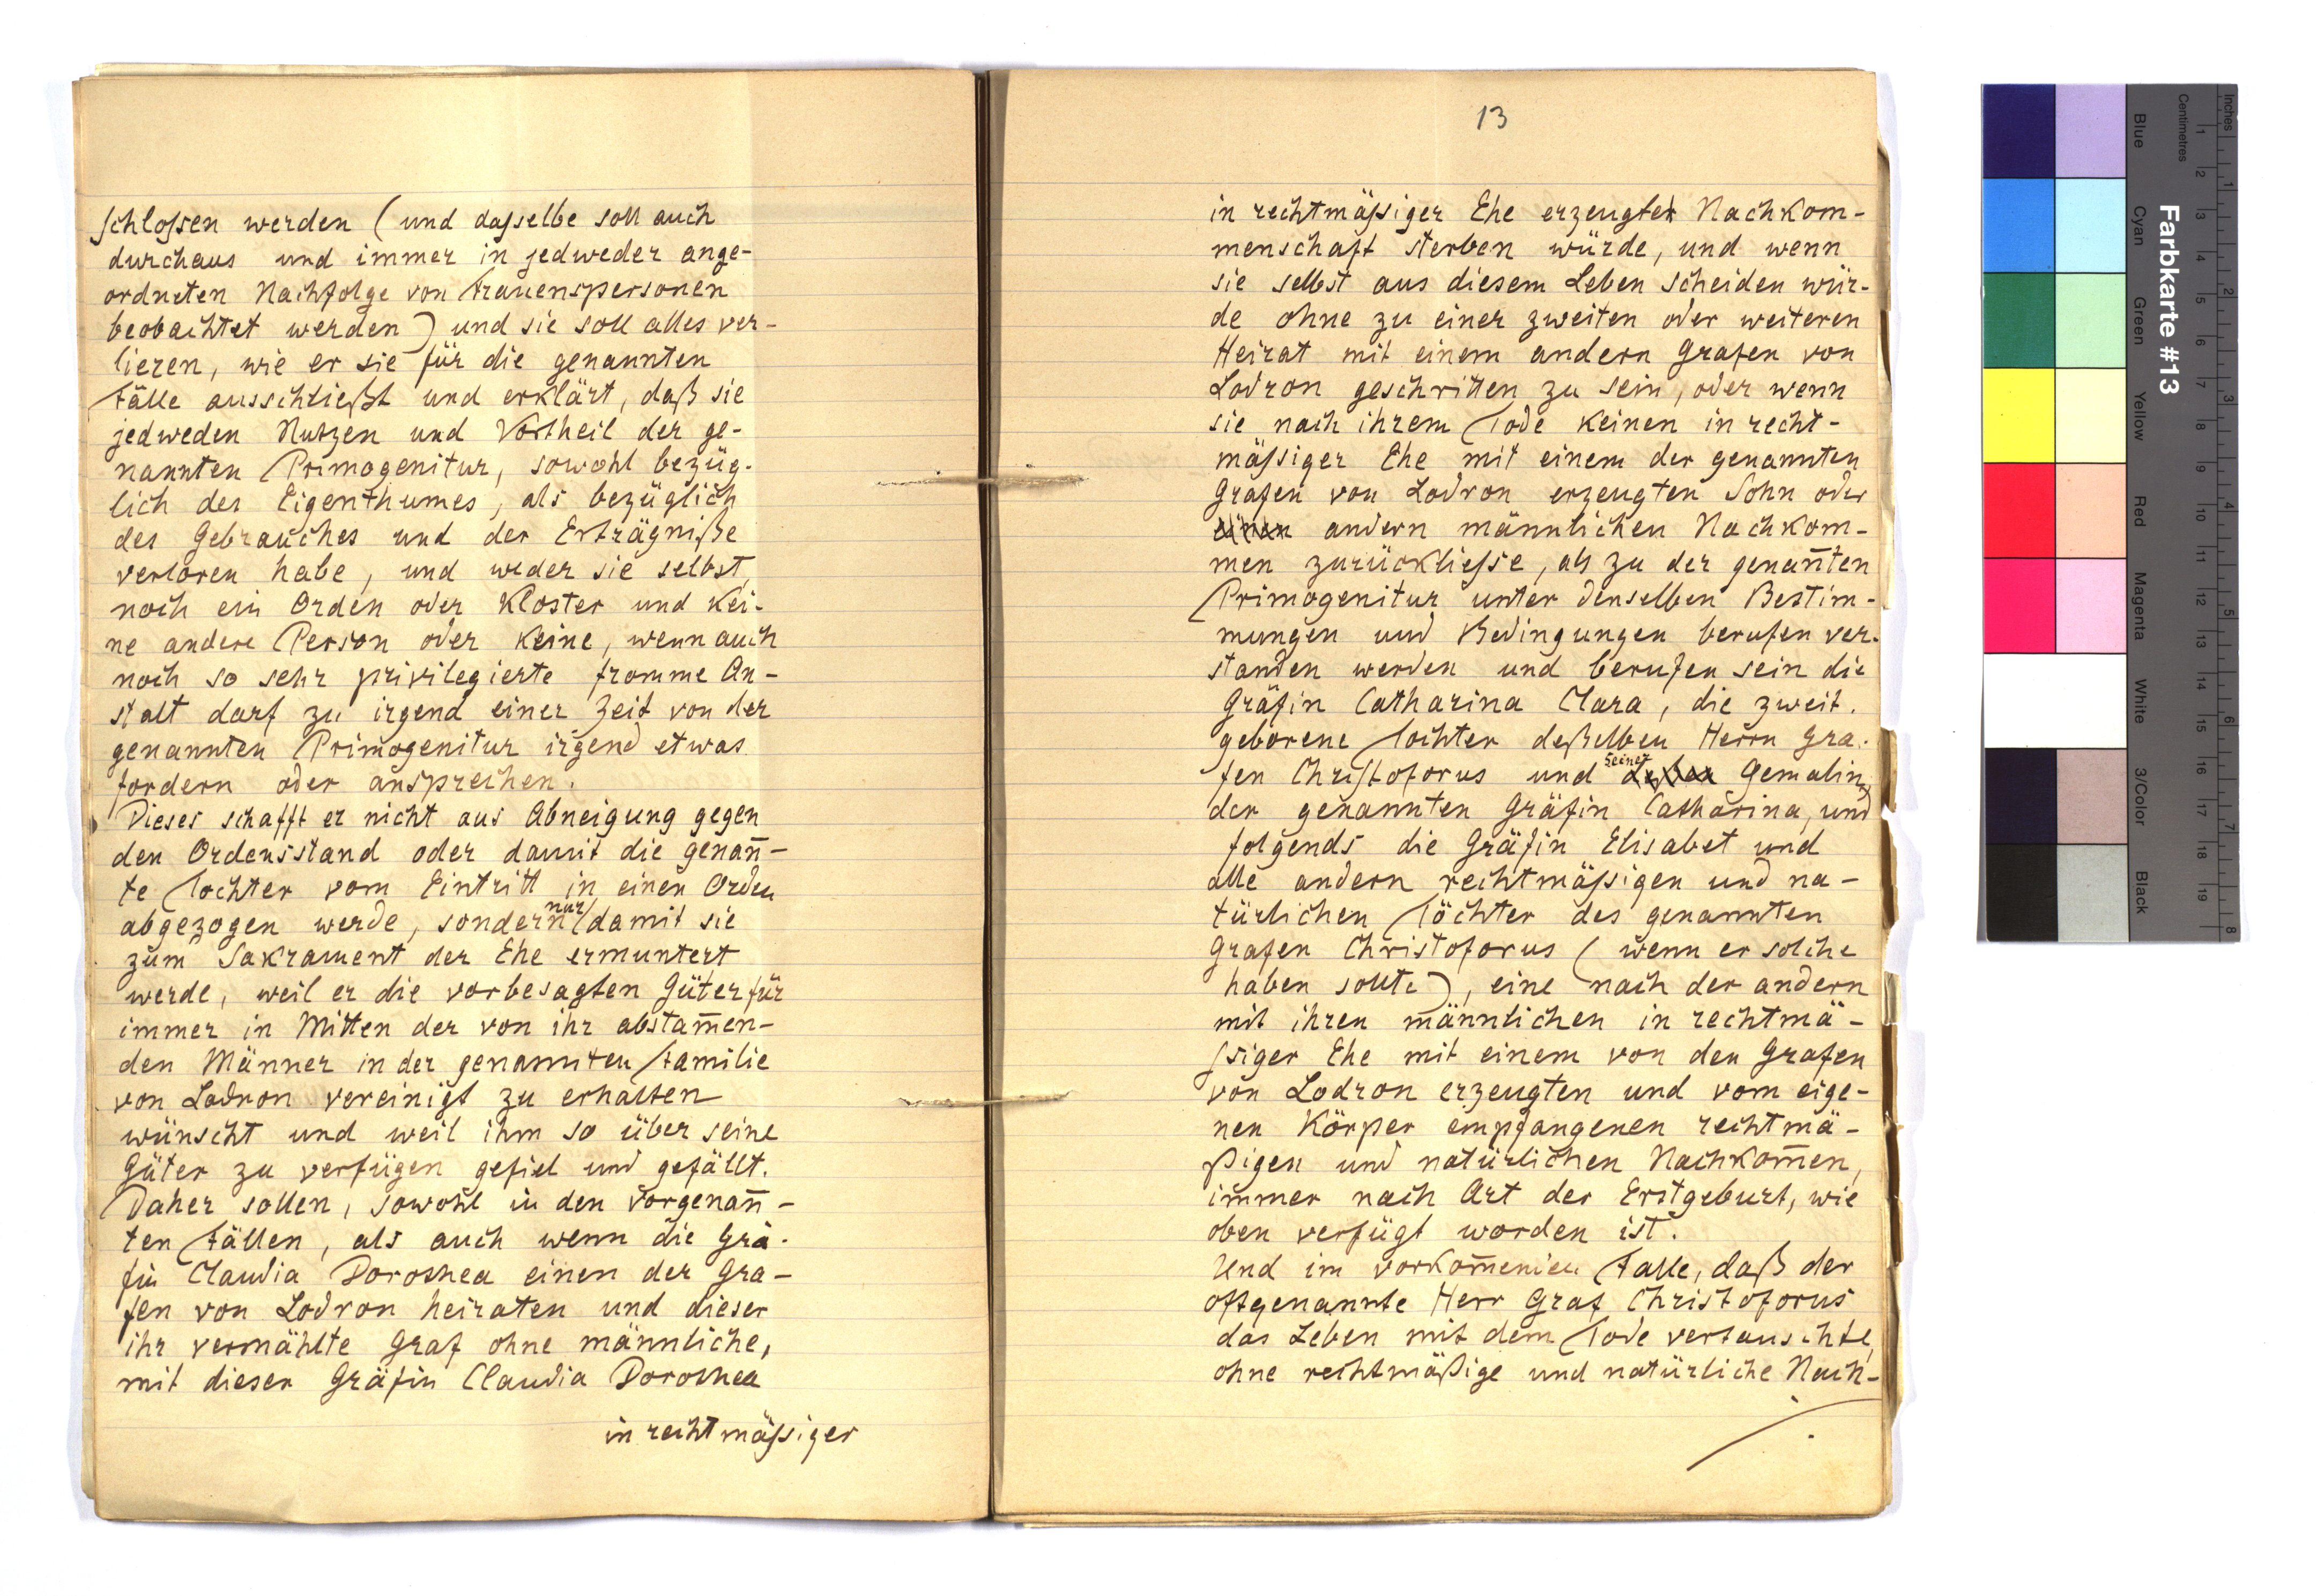 schloſsen werden (und daſselbe soll auch
durchaus und immer in jedweder ange-
ordneten Nachfolge von Frauenspersonen
beobachtet werden) und sie soll alles ver-
lieren, wie er sie für die genannten
Fälle ausschließt und erklärt, daß sie
jedweden Nutzen und Vortheil der ge-
nannten Primogenitur, sowohl bezüg-
lich des Eigenthumes, als bezüglich
des Gebrauches und der Erträgniße
verloren habe, und weder sie selbst,
noch ein Orden oder Kloster und kei-
ne andere Person oder keine, wenn auch
noch so sehr privilegierte fromme An-
stalt darf zu irgend einer Zeit von der
genannten Primogenitur irgend etwas
fordern oder ansprechen.
Dieses schafft er nicht aus Abneigung gegen
den Ordensstand oder damit die genan̄-
te Tochter vom Eintritt in einen Orden
abgezogen werde, sondern nur damit sie
zum Sakrament der Ehe ermuntert
werde, weil er die vorbesagten Güter für
immer in Mitten der von ihr abstam̄en-
den Männer in der genannten Familie
von Lodron vereinigt zu erhalten
wünscht und weil ihm so über seine
Güter zu verfügen gefiel und gefällt.
Daher sollen, sowohl in den vorgenan̄-
ten Fällen, als auch wenn die Grä-
fin Claudia Dorothea einen der Gra-
fen von Lodron heiraten und dieser
ihr vermählte Graf ohne männliche,
mit dieser Gräfin Claudia Dorothea
in rechtmäſsiger
13
in rechtmäſsiger Ehe erzeugter Nachkom-
menschaft sterben würde, und wenn
sie selbst aus diesem Leben scheiden wür-
de ohne zu einer zweiten oder weiteren
Heirat mit einem andern Grafen von
Lodron geschritten zu sein, oder wenn
sie nach ihrem Tode keinen in recht-
mäſsiger Ehe mit einem der genannten
Grafen von Lodron erzeugten Sohn oder
einen andern männlichen Nachkom-
men zurückließse, als zu der genan̄ten
Primogenitur unter denselben Bestim-
mungen und Bedingungen berufen ver-
standen werden und berufen sein die
Gräfin Catharina Clara, die zweit-
geborene Tochter deßelben Herrn Gra-
fen Chriſtoforus und seiner Gemalin,
der genannten Gräfin Catharina, und
folgends die Gräfin Elisabet und
alle andern rechtmäſsigen und na-
türlichen Töchter des genannten
Grafen Christoforus (wenn er solche
haben sollte), eine nach der andern
mit ihren männlichen in rechtmä-
ſsiger Ehe mit einem von den Grafen
von Lodron erzeugten und vom eige-
nen Körper empfangenen rechtmä-
ßigen und natürlichen Nachkom̄en,
immer nach Art der Erstgeburt, wie
oben verfügt worden ist.
Und im vorkom̄enden Falle, daß der
oftgenannte Herr Graf Christoforus
das Leben mit dem Tode vertauschte,
ohne rechtmäßige und natürliche Nach-
Farbkarte #13
Inches
Centimetres
1 2 3 4 5 6 7 8
1 2 3 4 5 6 7 8 9 10 11 12 13 14 15 16 17 18 19
Blue
Cyan
Green
Yellow
Red
Magenta
White
3/Color
Black